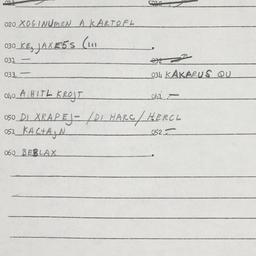 020 XOGINUMEN A KARTOFL
030
031 —
031 — 034 KAKAPUS QU
040 A.HITL KROJT 041 —
050 DI XRAPEJ- /DI HARC/HERCL
051 KACTAJN 052 —
060 BEBLAX